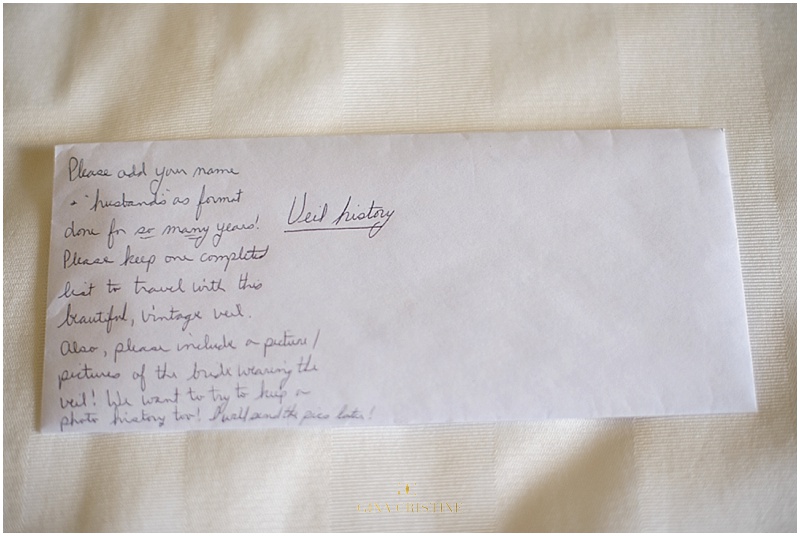 Please add your name
+ "husbands" as format
done for so many years!
Veil history
Please keep one completed
list to travel with this
beautiful, vintage veil.
Also, please include a picture/
pictures of the bride wearing the
veil! We want to try to keep a
photo history too! I will send the pics later!
GINA CRISTINE